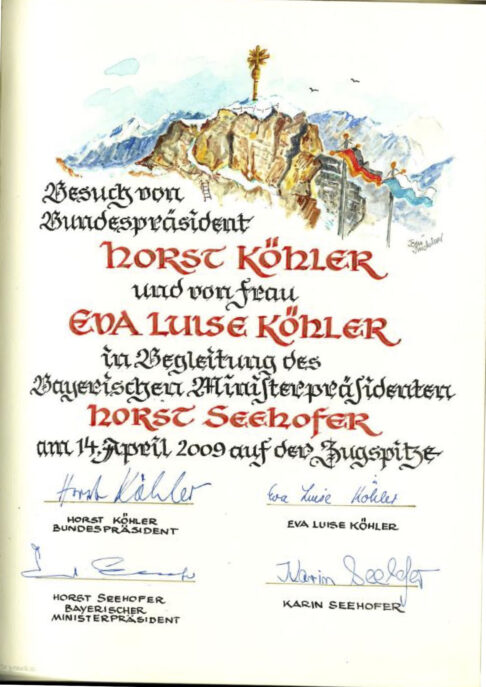 Besuch von
Bundespräsident
HORST KÖHLER
und von Frau
EVA LUISE KÖHLER
in Begleitung des
Bayerischen Ministerpräsidenten
HORST SEEHOFER
am 14. April 2009 auf der Zugspitze
Horst Köhler
Eva Luise Köhler
HORST KÖHLER
BUNDESPRÄSIDENT
EVA LUISE KÖHLER
Karin Seehofer
HORST SEEHOFER
BAYERISCHER
MINISTERPRÄSIDENT
KARIN SEEHOFER